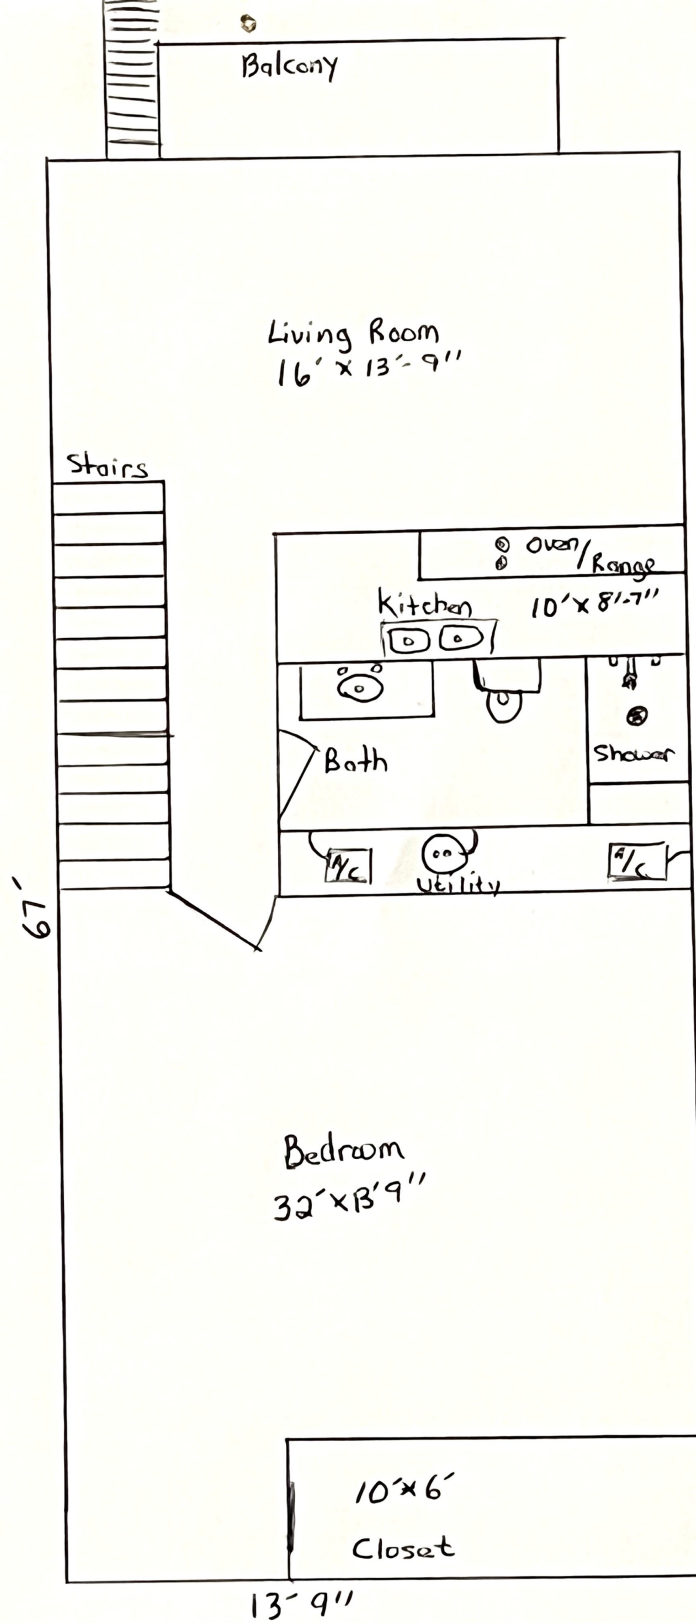 Balcony
Living Room
16' x 13'-9"
Stairs
Oven/
Range
Kitchen
10' x 8'-7"
Bath
Shower
A/C
Utility
A/C
67'
Bedroom
32' x 13'9"
10' x 6'
Closet
13-9"